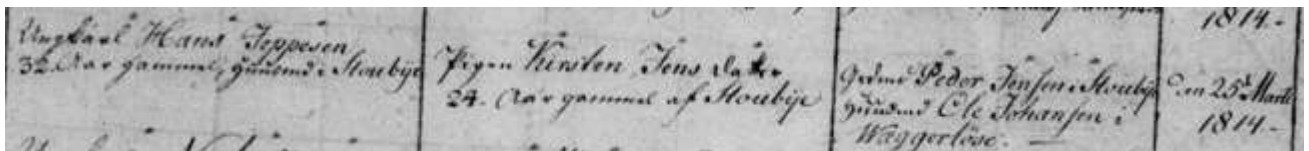 1814.-
Ungkarl Hans Jeppesen
32 Aar gammel, Huusmd i Stoubÿe
Pigen Kirsten Jens Datter
24. Aar gammel af Stoubÿe
Gdmd Peder Jensen i Stoubÿe
Huusmd Ole Johansen i
Wæggerløse. —
den 25de Martii
1814.-